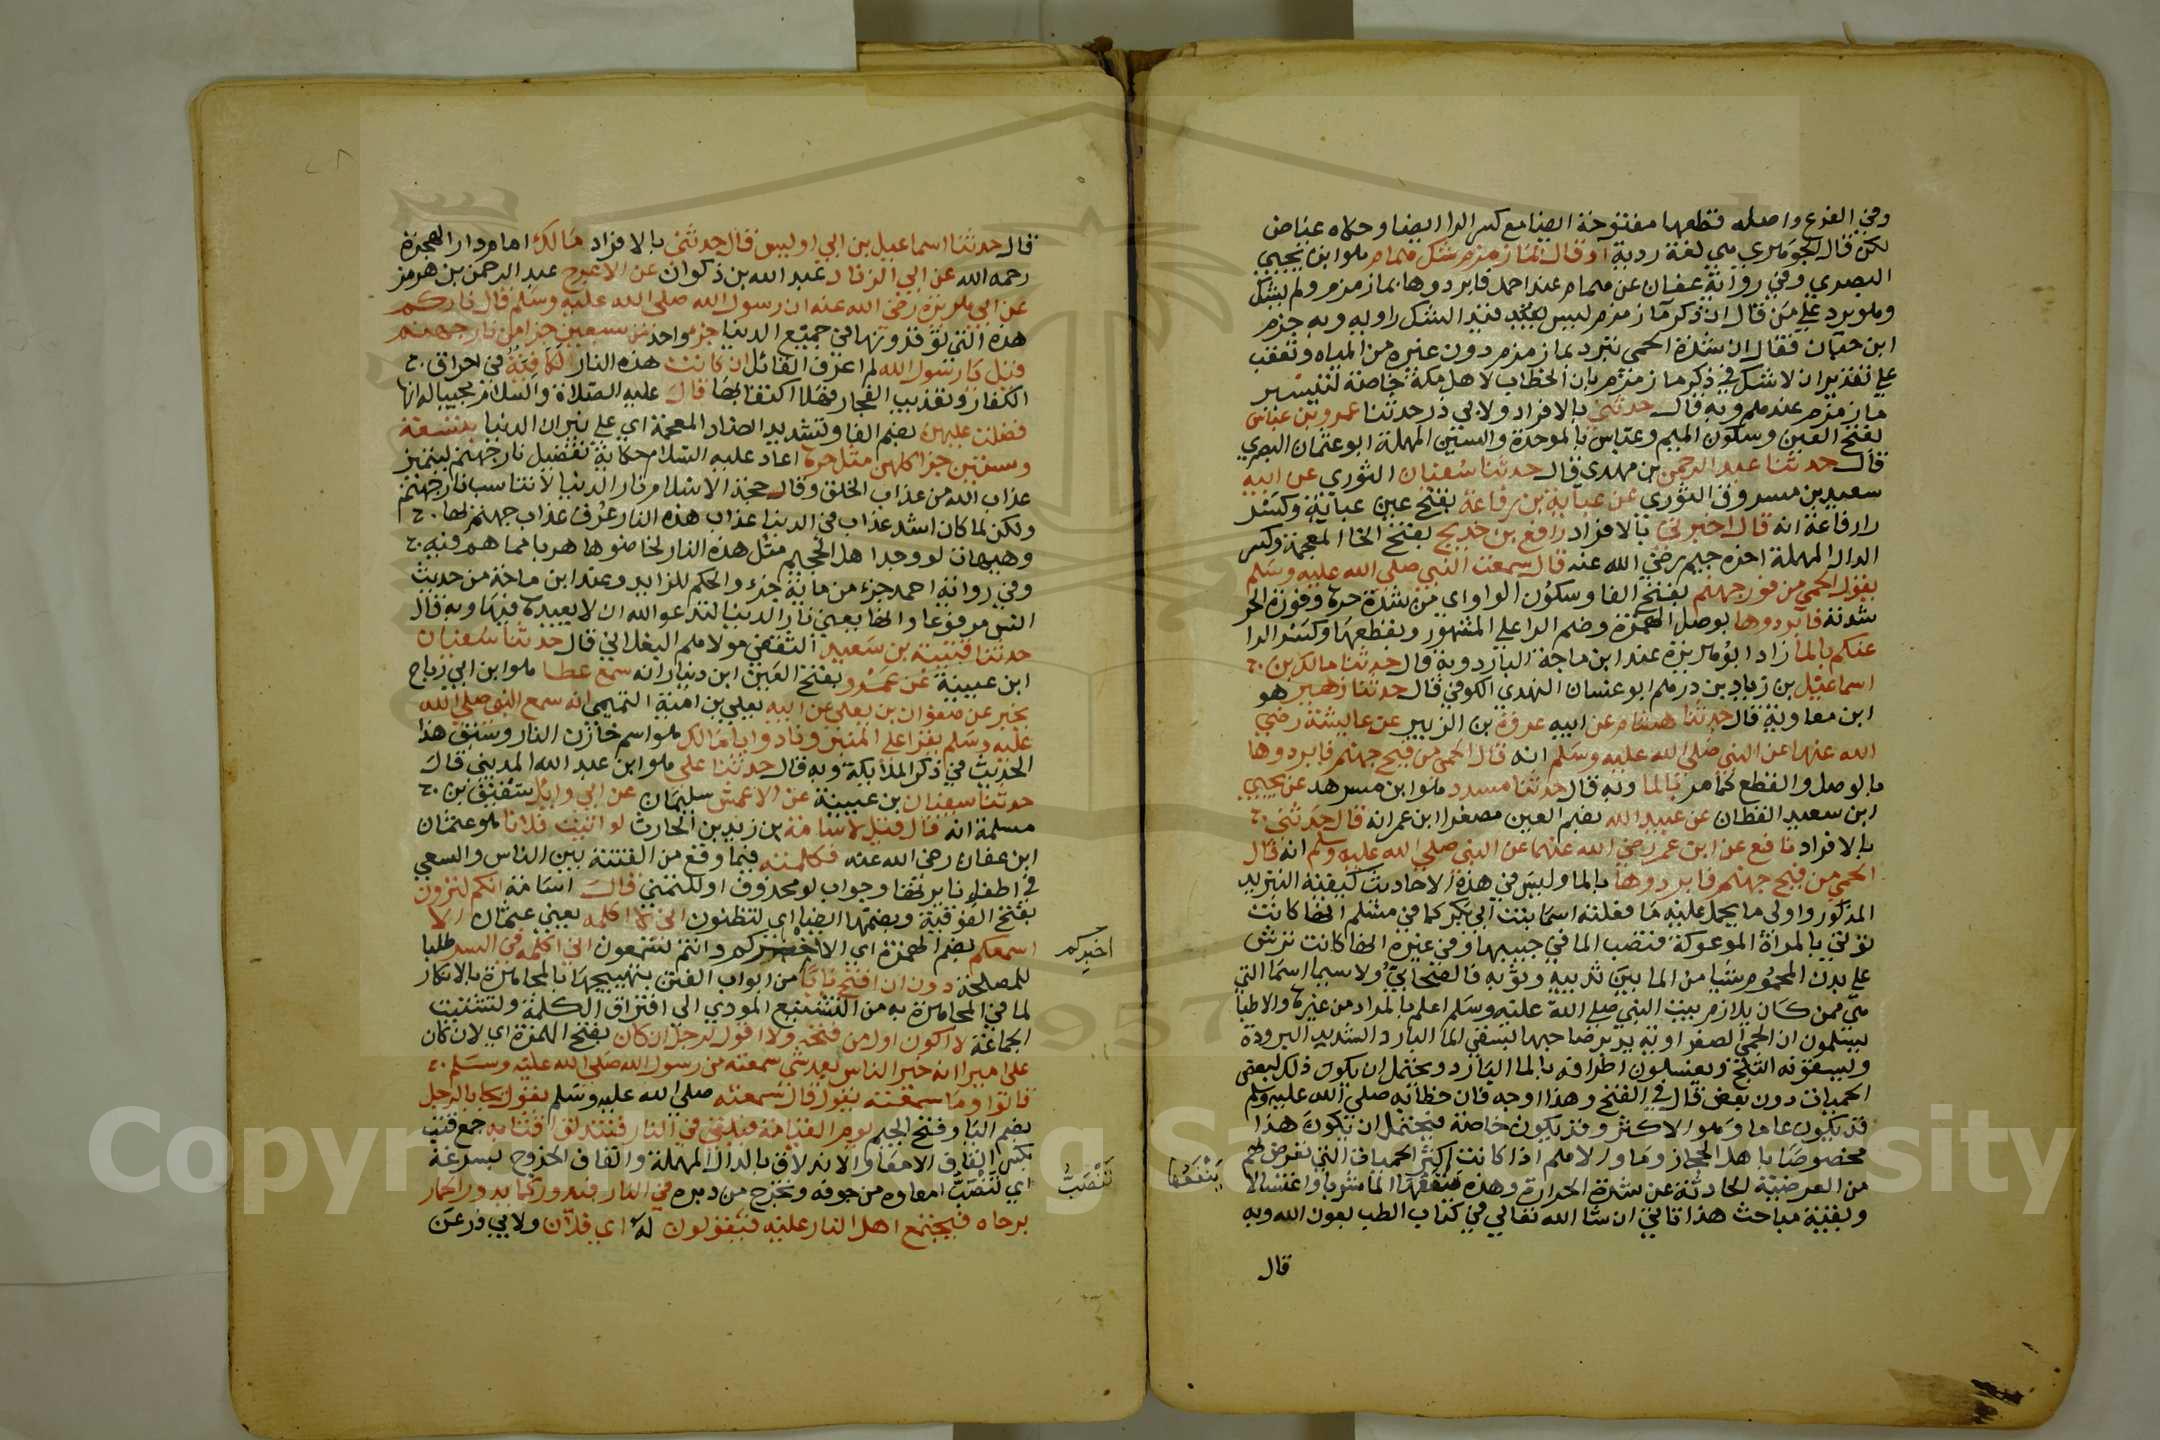 وفي الفرع واصله فقطعها مفتوحة ايضا مع كسر الرا ايضا وحكاه عياض
لكن قال الجوهري هي لغة ردية او قال بماء زمزم شك همام هو ابن يحيي
البصري وفي رواية عفان عن همام عند احمد فابردوها بماء زمزم ولم يشك
وهو يرد علي من قال ان ذكر ماء زمزم ليس بقيد فيه الشك راويه وبه جزم
ابن حبان فقال ان شدة الحمي تبرد بماء زمزم دون غيره من المياه وتعقب
علي تقدير ان لا شك في ذكر ماء زمزم بان الخطاب لاهل مكة خاصة لتيسر
ماء زمزم عندهم وبه قال حدثني بالافراد ولابي ذر حدثنا عمرو بن عباس
بفتح العين وسكون الميم وعباس بالموحدة والسين المهملة ابو عثمان البصري
قال حدثنا عبد الرحمن بن مهدي قال حدثنا سفيان الثوري عن ابيه
سعيد بن مسروق الثوري عن عباية بن رفاعة بفتح عين عباية وكسر
را رفاعة انه قال اخبرني بالافراد رافع بن خديج بفتح الخا المعجمة وكسر
الدال المهملة اخره جيم رضي الله عنه قال سمعت النبي صلي الله عليه وسلم
يقول الحمي من فور جهنم بفتح الفا وسكون الواو اي من شدة حرها وفورة الحر
شدته فابردوها بوصل الهمزة وضم الرا علي المشهور وبقطعها وكسر الرا
عنكم بالما زاد ابو هريرة عند ابن ماجة البارد وبه قال حدثنا مالك بن
اسماعيل بن زياد بن درهم ابو غسان النهدي الكوفي قال حدثنا زهير هو
ابن معاوية قال حدثنا هشام عن ابيه عروة بن الزبير عن عايشة رضي
الله عنها عن النبي صلي الله عليه وسلم انه قال الحمي من فيح جهنم فابردوها
بالوصل والقطع كما مر بالما وبه قال حدثنا مسدد هو ابن مسرهد عن يحيي
ابن سعيد القطان عن عبيد الله بضم العين مصغرا ابن عمر انه قال حدثني
بالافراد نافع عن ابن عمر رضي الله عنهما عن النبي صلي الله عليه وسلم انه قال
الحمي من فيح جهنم فابردوها بالما وليس في هذه الاحاديث كيفية التبريد
المذكور واولي ما يحمل عليه ما فعلته اسما بنت ابي بكر كما في مسلم انها كانت
تؤتي بالمراة الموعوكة فتصب الما في جيبها وفي غيره انها كانت ترش
علي بدن المحموم شيا من الما بين ثدييه وثوبه فالصحابي ولا سيما اسما التي
هي ممن كان يلازم بيت النبي صلي الله عليه وسلم اعلم بالمراد من غيرها والاطبا
يسلمون ان الحمي الصفراوية يبرد صاحبها بسقي الما البارد الشديد البرودة
ويسقونه الثلج ويغسلون اطرافه بالما البارد ويحتمل ان يكون ذلك لبعض
الحميات دون بعض قال في الفتح وهذا اوجه فان خطابه صلي الله عليه وسلم
قد يكون عاما وهو الاكثر وقد يكون خاصة فيحتمل ان يكون هذا
مخصوصا باهل الحجاز وما والاهم اذا كانت اكثر الحميات التي تعرض لهم
من العرضية الحادثة عن شدة الحرارة وهذه ينفعها الما شربا واغتسالا
وبقية مباحث هذا تاتي ان شا الله تعالي في كتاب الطب بعون الله وبه
ينفعها
قال
قال حدثنا اسماعيل بن ابي اويس قال حدثني بالافراد مالك امام دار الهجرة
رحمه الله عن ابي الزناد عبد الله بن ذكوان عن الاعرج عبد الرحمن بن هرمز
عن ابي هريرة رضي الله عنه ان رسول الله صلي الله عليه وسلم قال ناركم
هذه التي توقدونها في جميع الدنيا جز واحد من سبعين جزا من نار جهنم
قيل يا رسول الله لم اعرف القائل ان كانت هذه النار لكافية في احراق
الكفار وتعذيب الفجار فهلا اكتفا بها قال عليه الصلاة والسلام مجيبا له انها
فضلت عليهن بضم الفا وتشديد الضاد المعجمة اي علي نيران الدنيا بتسعة
وستين جزا كلهن مثل حرها اعاد عليه السلام حكاية تفضيل نار جهنم ليتميز
عذاب الله من عذاب الخلق وقال حجة الاسلام نار الدنيا لا تناسب نار جهنم
ولكن لما كان اشد عذاب في الدنيا عذاب هذه النار عرف عذاب جهنم بها
وهيهات لو وجد اهل الجحيم مثل هذه النار لخاضوها هربا مما هم فيه
وفي رواية احمد جزء من ماية جزء والحكم للزايد وعند ابن ماجة من حديث
انس مرفوعا وانها يعني نار الدنيا لتدعو الله ان لا يعيدها فيها وبه قال
حدثنا قتيبة بن سعيد الثقفي مولاهم البغلاني قال حدثنا سفيان
ابن عيينة عن عمرو بفتح العين ابن دينار انه سمع عطا هو ابن ابي رباح
يخبر عن صفوان بن يعلي عن ابيه يعلي بن امية التميمي انه سمع النبي صلي الله
عليه وسلم يقرا علي المنبر ونادوا يا مالك هو اسم خازن النار وسبق هذا
الحديث في ذكر الملايكة وبه قال حدثنا علي هو ابن عبد الله المديني قال
حدثنا سفيان بن عيينة عن الاعمش سليمان عن ابي وايل شقيق بن
مسلمة انه قال قيل لاسامة بن زيد بن الحارث لو اتيت فلانا هو عثمان
ابن عفان رضي الله عنه فكلمته فيما وقع من الفتنة بين الناس والسعي
في اطفاء نايرتها وجواب لو محذوف او للتمني قال اسامة انكم لترون
بفتح الفوقية وبضمها ايضا اي لتظنون اني لا اكلمه يعني عثمان الا
اسمعكم بضم الهمزة اي الا وانتم تسمعون اني اكلمه في السر طلبا
اخبركم
للمصلحة دون ان افتح بابا من ابواب الفتن بتهييجها بالمجاهرة بالانكار
لما في المجاهرة به من التشنيع المودي الي افتراق الكلمة وتشتيت
الجماعة لا اكون اول من فتحه ولا اقول لرجل ان كان بفتح الهمزة اي لان كان
علي اميرا انه خير الناس بعد شي سمعته من رسول الله صلي الله عليه وسلم
قالوا وما سمعته يقول قال سمعته صلي الله عليه وسلم يقول يجا بالرجل
بضم اليا وفتح الجيم يوم القيامة فيلقي في النار فتندلق اقتابه جمع قتب
بكسر القاف الامعا والاندلاق بالدال المهملة والقاف الخروج بسرعة
اي تنصب امعاوه من جوفه وتخرج من دبره في النار فيدور كما يدور الحمار
تنصب
برحاه فيجتمع اهل النار عليه فيقولون له اي فلان ولابي ذر عن
Copyright © King Saud University
957